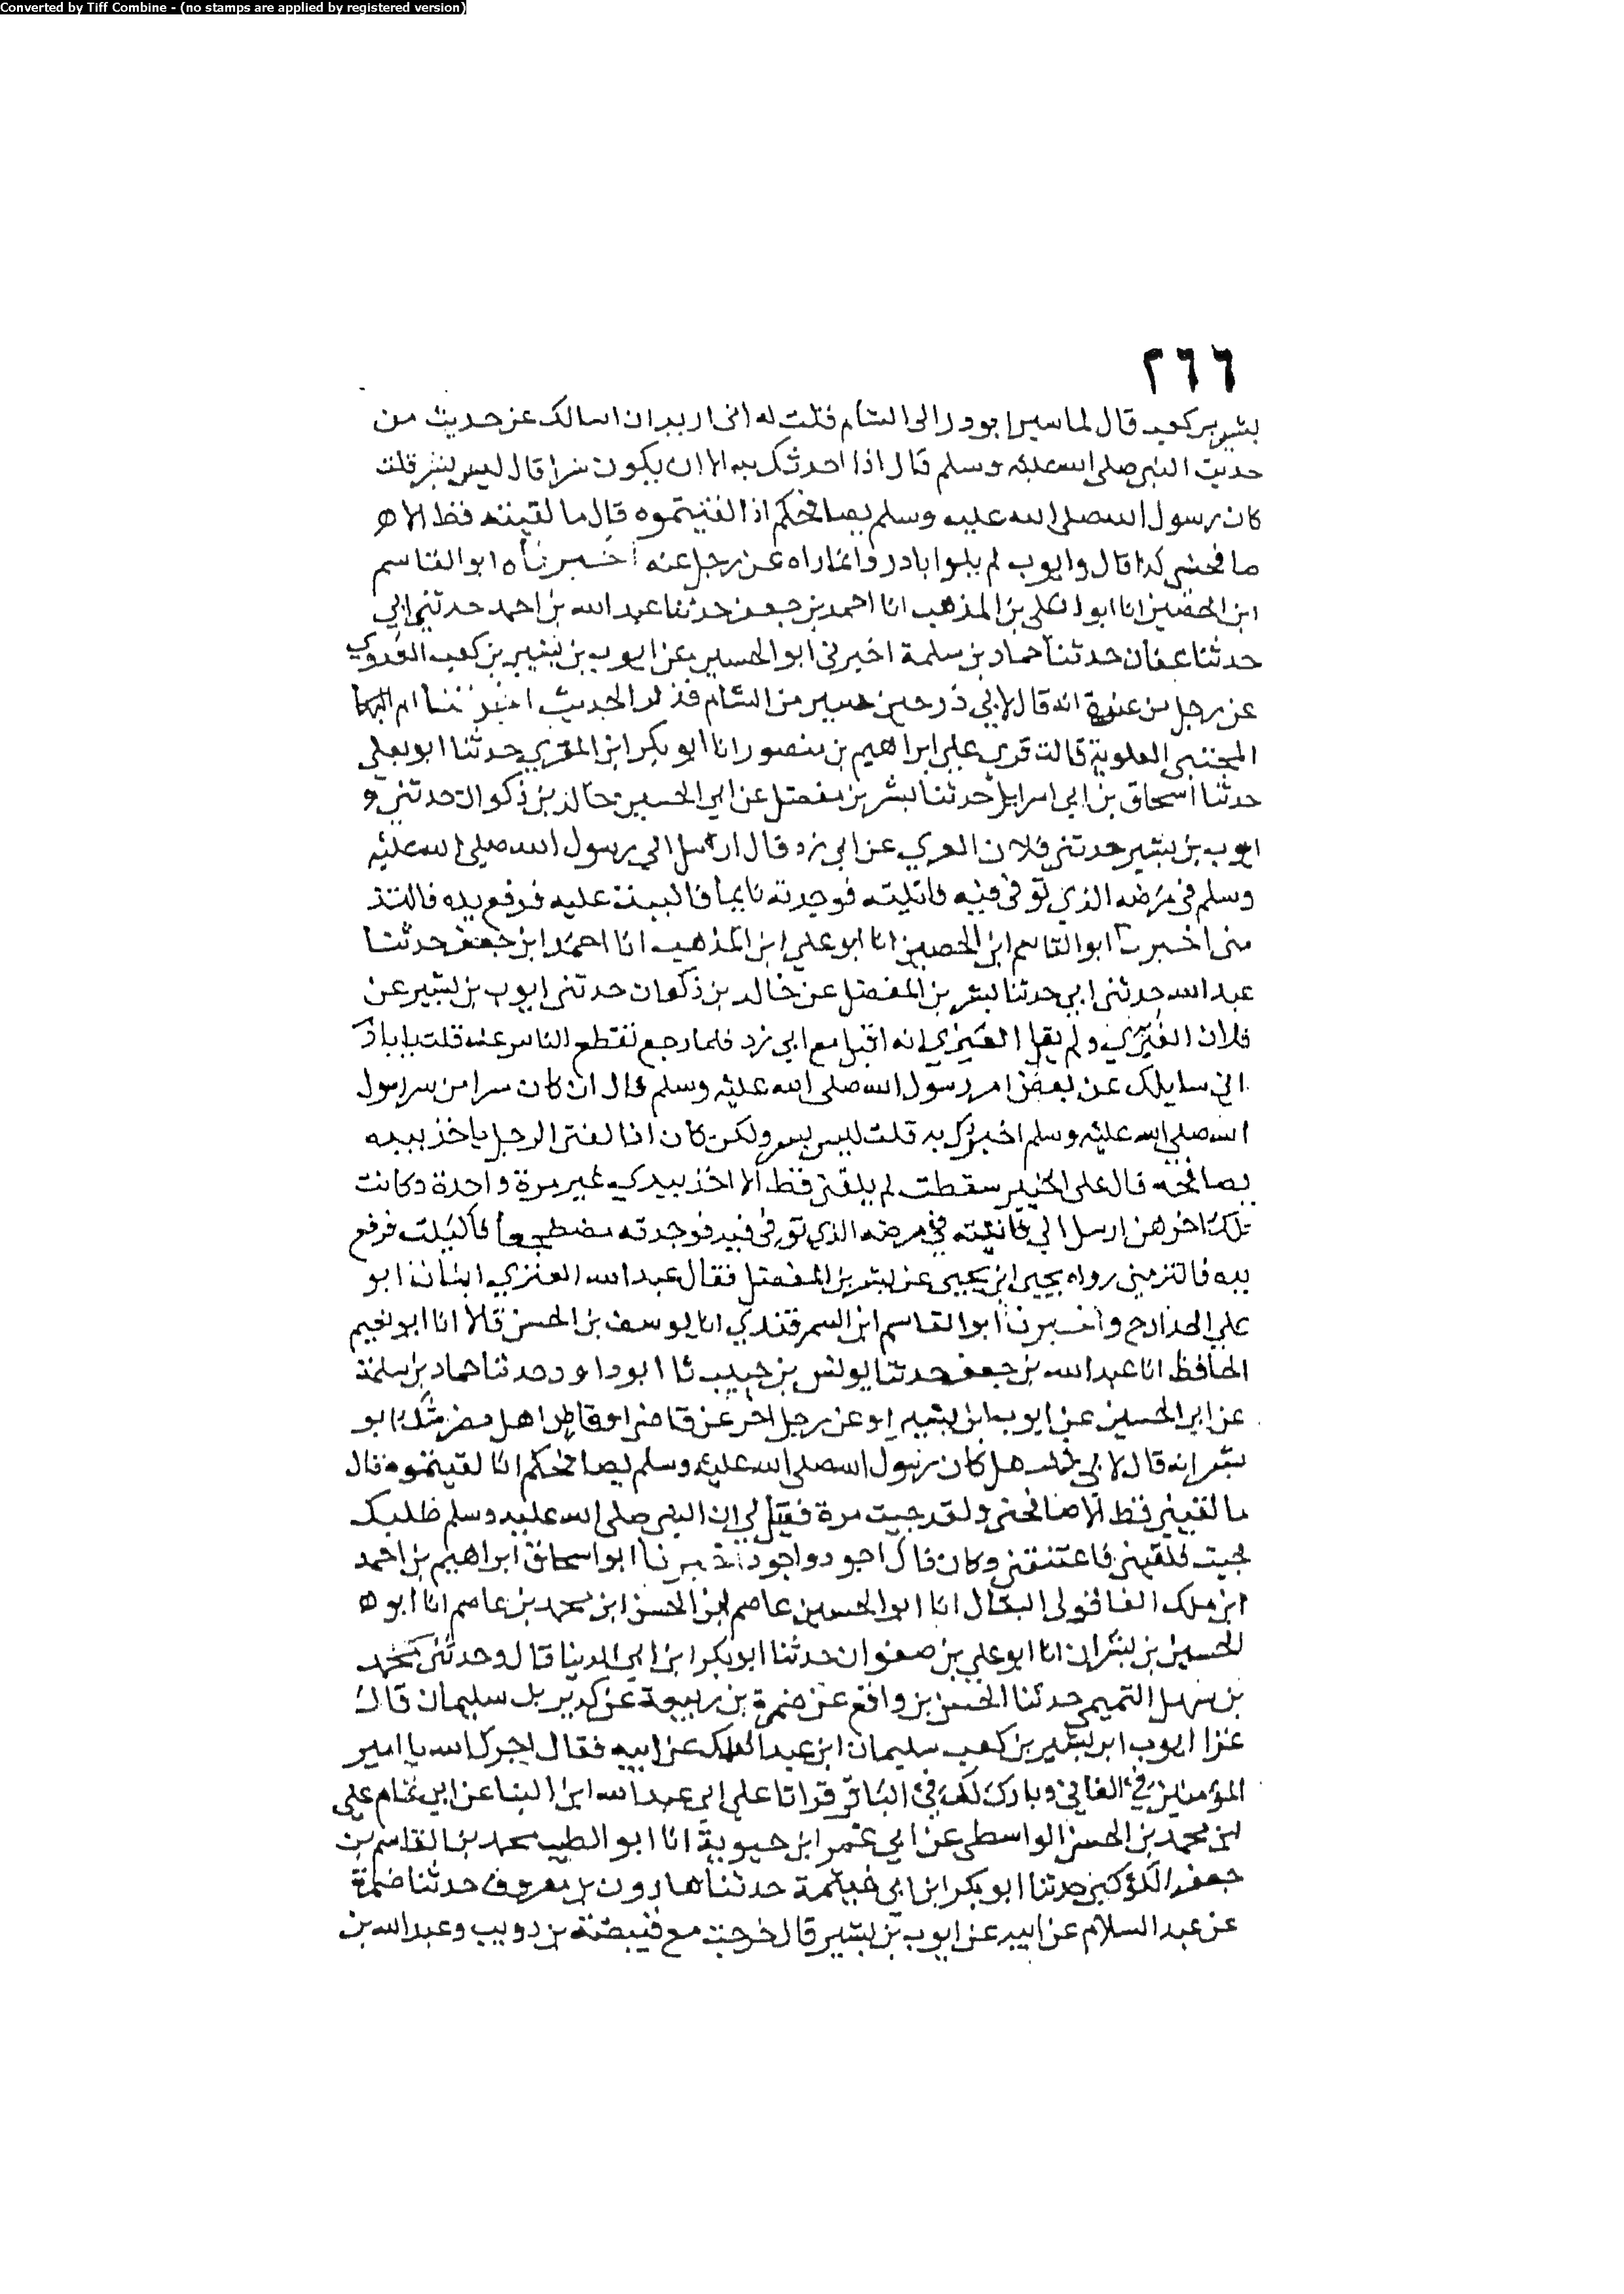 Converted by Tiff Combine - (no stamps are applied by registered version)
٢٦٦
بشير بن كعب قال لما سير ابو در الى الشام قلت له انى اريد ان اسالك عن حديث من
حديث النبى صلى الله عليه وسلم قال اذا احدثك به الا ان يكون سرا قال ليس بسر قلت
كان رسول الله صلى الله عليه وسلم يصافحكم اذا لقيتموه قال ما لقيته قط الا هـ
صافحنى كذا قال وايوب لم يلوا باذر وانما راه عن رجل عنه اخبرناه ابو القاسم
ابن الحصين انا ابو علي بن المذهب انا احمد بن جعفر حدثنا عبد الله بن احمد حدثني ابي
حدثنا عفان حدثنا حماد بن سلمة اخبرنى ابو الحسين عن ايوب بن بشير بن كعب العدوي
عن رجل من عنزة انه قال لابي ذر حين سير من الشام فذكر الحديث اخبرتنا ام البها
المجتبى العلوية قالت قري على ابراهيم بن منصور انا ابو بكر ابن المقري حدثنا ابو يعلي
حدثنا اسحاق بن ابي اسرايل حدثنا بشر بن مفضل عن ابي الحسين خالد بن ذكوان حدثني و
ايوب بن بشير حدثني فلان العري عن ابي زد قال ارسل الي رسول الله صلى الله عليه
وسلم في مرضه الذي توفى فيه فاتيته فوجدته نايما فاكببت عليه فرفع يده فالتذ
منى اخبرنا ابو القاسم ابن الحصين انا ابو علي ابن المذهب انا احمد ابن جعفر حدثنا
عبد الله حدثنى ابي حدثنا بشر بن المفضل عن خالد بن ذكوان حدثنى ايوب بن بشير عن
فلان العنزي ولم يقل الغبري انه اقبل مع ابي زد فلما رجع تقطع الناس عنه قلت يا باذر
اني سايلك عن بعض امر رسول الله صلى الله عليه وسلم قال ان كان سرا من سر رسول
الله صلى الله عليه وسلم اخبرك به قلت ليس بسر ولكن كان اذا لقى الرجل ياخذ بيده
يصافحه قال على الخبير سقطت لم يلقنى قط الا اخذ بيدي غير مرة واحدة وكانت
تلك اخرهن ارسل الي فاتيته في مرضه الذي توفى فيه فوجدته مضطجعا فاكببت فرفع
يده فالتزمني رواه يحيى ابن يحيى عن بشر بن المفضل فقال عبد الله العنزي انبانا ابو
علي الحداد ح واخبرنا ابو القاسم ابن السمرقندي انا يوسف بن الحسن قالا انا ابو نعيم
الحافظ انا عبد الله بن جعفر حدثنا يونس بن حبيب نا ابو داود حدثنا حماد بن سلمة
عن ابي الحسين عن ايوب ابن بشير او عن رجل اخر عن قاضى او قاص اهل مصر شك ابو
بشر انه قال لابي هل كان رسول الله صلى الله عليه وسلم يصافحكم اذا لقيتموه قال
ما لقيني قط الا صافحنى ولقد جيت مرة فقيل لي ان النبي صلى الله عليه وسلم طلبك
فجيت فلقيني فاعتنقنى وكان قال اجود واجود اخبرنا ابو اسحاق ابراهيم بن احمد
ابن ملك العاقولى البقال انا ابو الحسين عاصم ابن الحسن ابن محمد بن عاصم انا ابو هـ
الحسين بن بشران انا ابو علي بن صفوان حدثنا ابو بكر ابن ابي الدنيا قال وحدثنى محمد
بن سهل التميمي حدثنا الحسن بن واقع عن ضمرة بن ربيعة عن كدير بل سليمان قال
عزا ايوب ابن بشير بن كعب سليمان ابن عبد الملك عن ابيه فقال اجرك الله يا امير
المؤمنين في الفاني وبارك لك في الباقي قراتا على ابي عبد الله ابن البنا عن ابي تمام على
ابن محمد بن الحسن الواسطى عن ابي عمر ابن حيوية انا ابو الطيب محمد بن القاسم بن
جعفر الكوكبي حدثنا ابو بكر ابن ابي خيثمة حدثنا هارون بن معروف حدثنا ضمرة
عن عبد السلام عن ابيه عن ايوب بن بشير قال خرجت مع قبيصة بن دويب وعبد الله بن